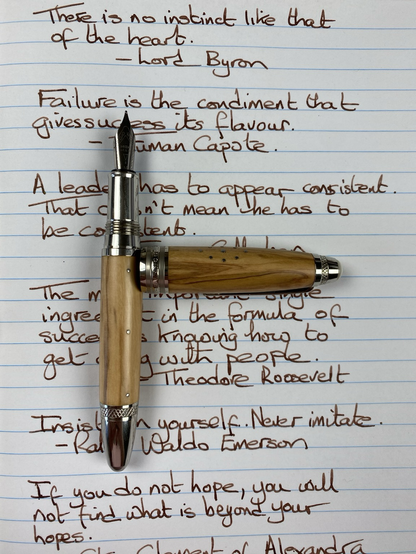 There is no instinct like that
of the heart.
- Lord Byron
Failure is the condiment that
gives success its flavour.
- Truman Capote.
A leader has to appear consistent.
That doesn't mean he has to
be consistent.
The most important single
ingredient in the formula of
success is knowing how to
get along with people.
Theodore Roosevelt
Insist on yourself. Never imitate.
- Ralph Waldo Emerson
If you do not hope, you will
not find what is beyond your
hopes.
Clement of Alexandra